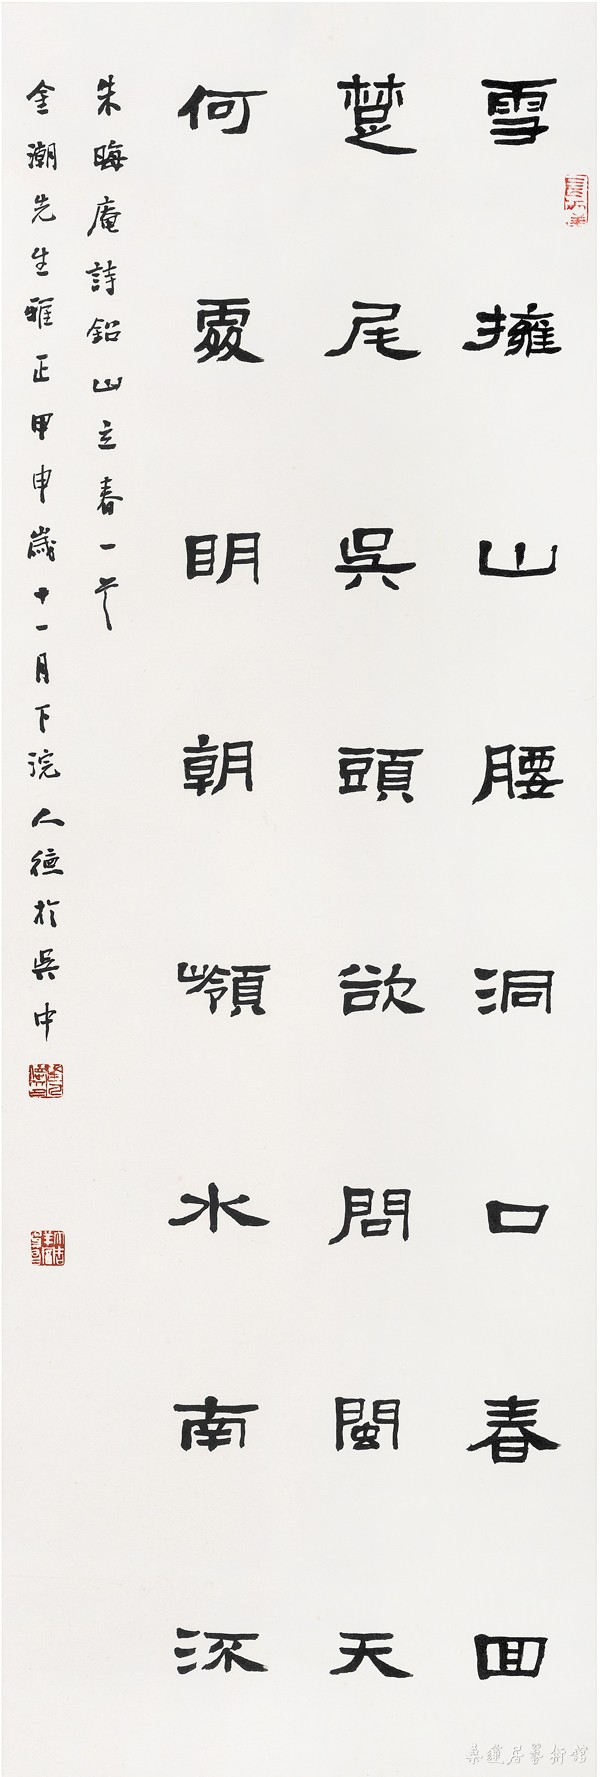 雪擁山腰洞口春回
楚尾吳頭欲問閩天
何處明朝嶺水南流
朱晦庵詩鉛山立春一首
金潮先生雅正甲申歲十一月下浣人德於吳中
桑蓮居藝術館